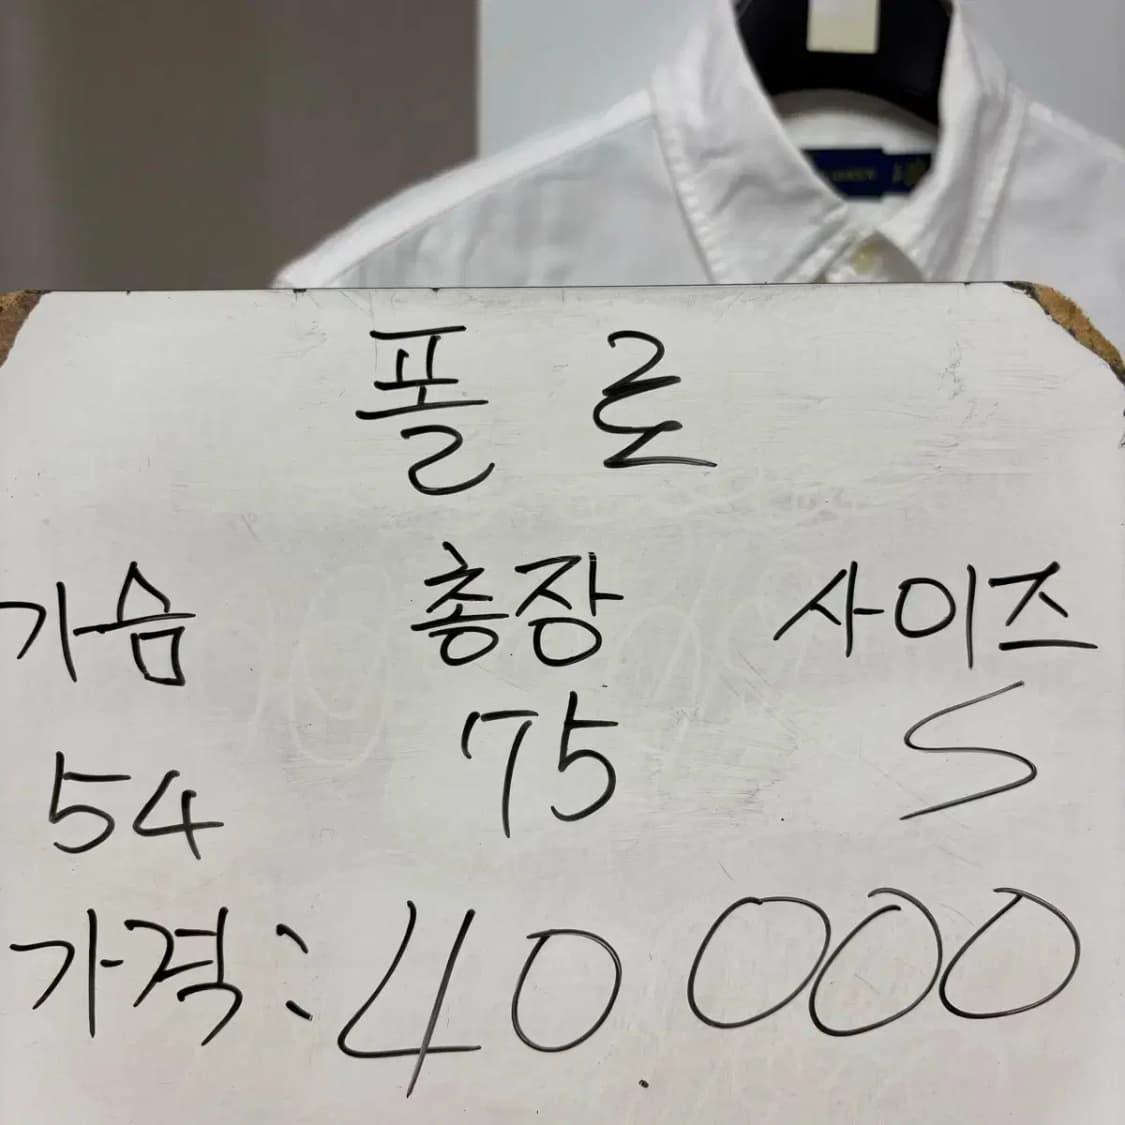 폴로
가슴 총장 사이즈
54 75 S
가격: 40 000